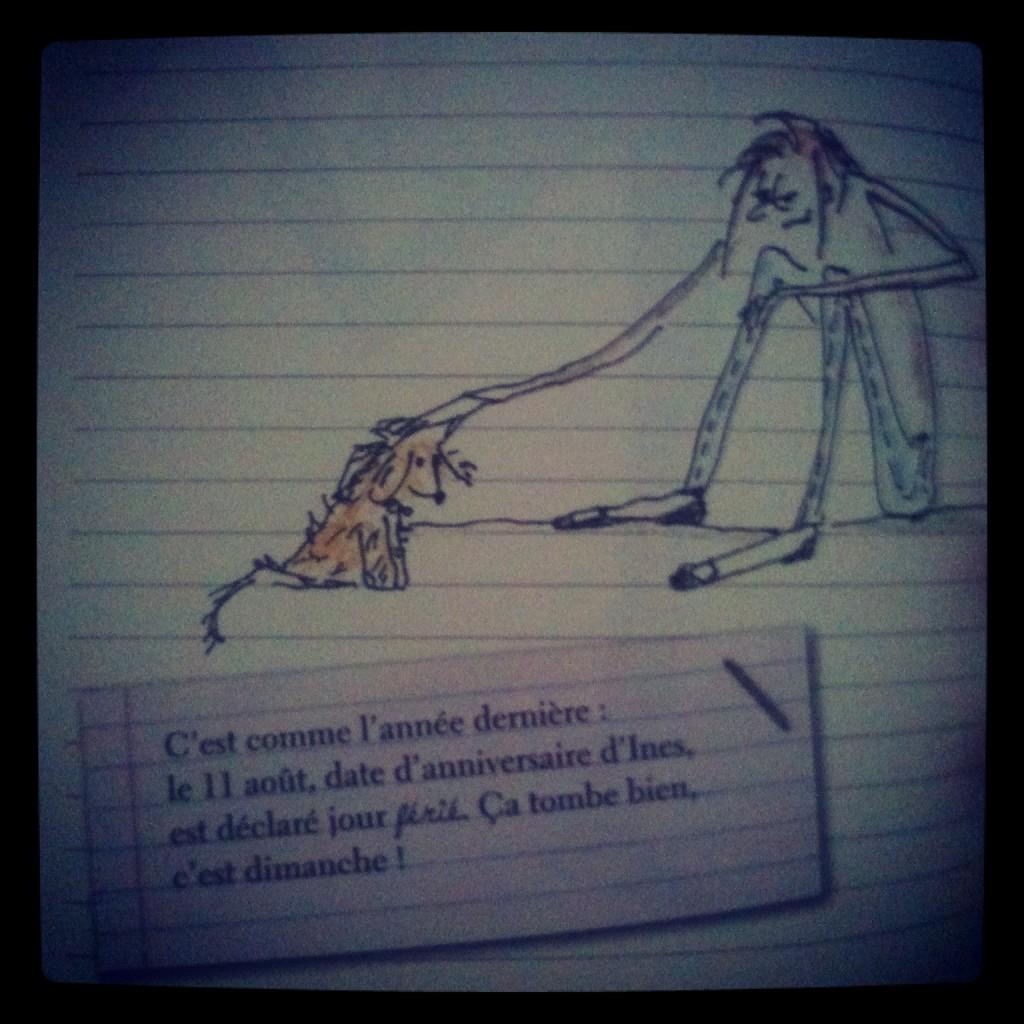 C'est comme l'année dernière :
le 11 août, date d'anniversaire d'Ines,
est déclaré jour férié. Ça tombe bien,
c'est dimanche !